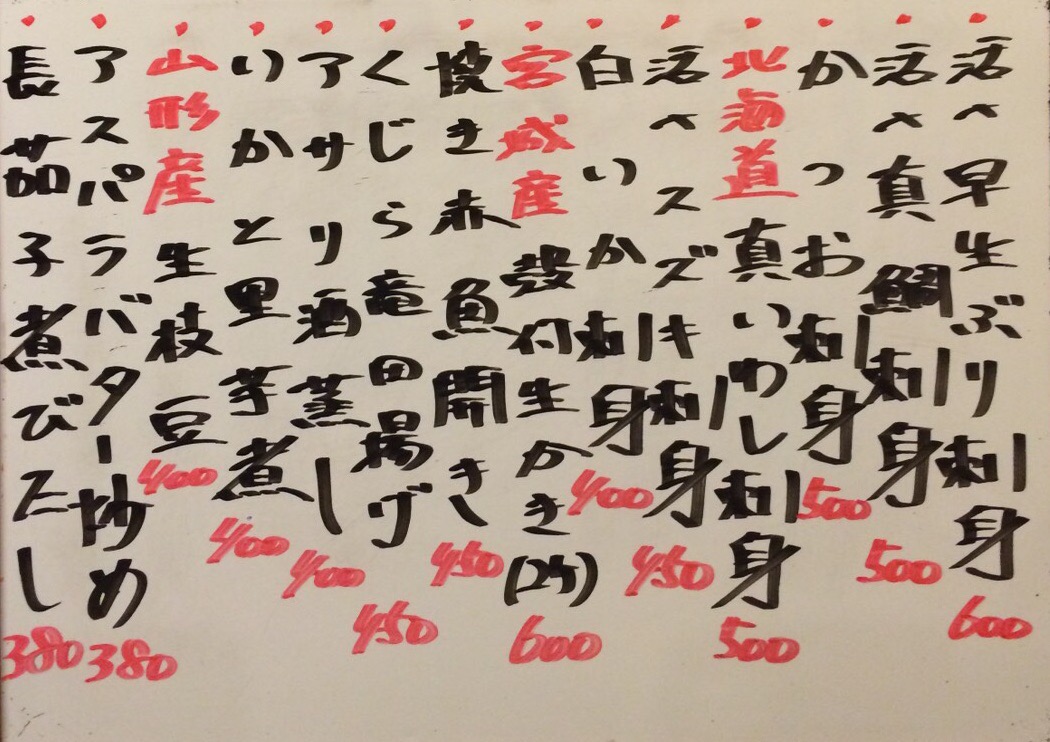 活〆早生ぶり刺身 600
活〆真鯛刺身 500
かつお刺身 500
北海道真いわし刺身 500
活〆スズキ刺身 450
白いか刺身 400
宮城産殻付生かき(2ケ) 600
き赤魚開き 450
くじら竜田揚げ 450
アサリ酒蒸し 400
いかと里芋煮 400
山形産生枝豆 400
アスパラバター炒め 380
長茄子煮びたし 380